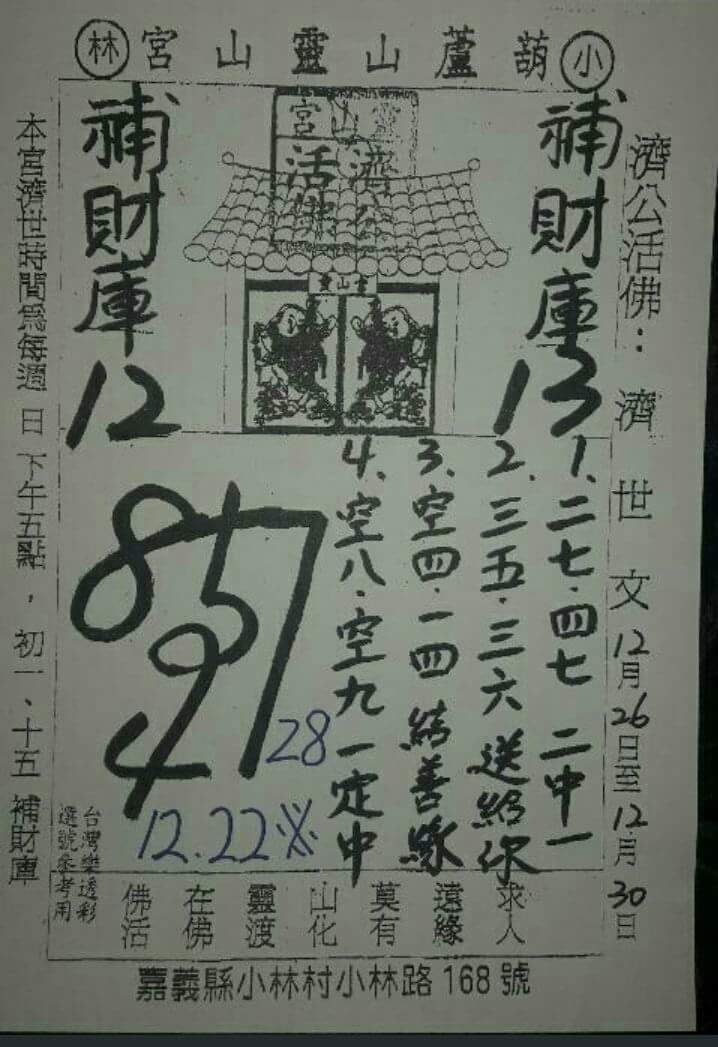 小葫蘆山靈山宮林
濟公活佛：濟世文12月26日至12月30日
補財庫13
靈山宮
濟公
活佛
靈山宮
補財庫12
1、二七·四七 二中一
2、三五·三六 送給你
3、空四·一四 結善緣
4、空八·空九 一定中
8 5 7
9
4
28
12.22※
台灣樂透彩
選號參考用
求人
遠緣
莫有
山化
靈渡
在佛
佛活
本宮濟世時間為每週日下午五點，初一、十五補財庫
嘉義縣小林村小林路168號